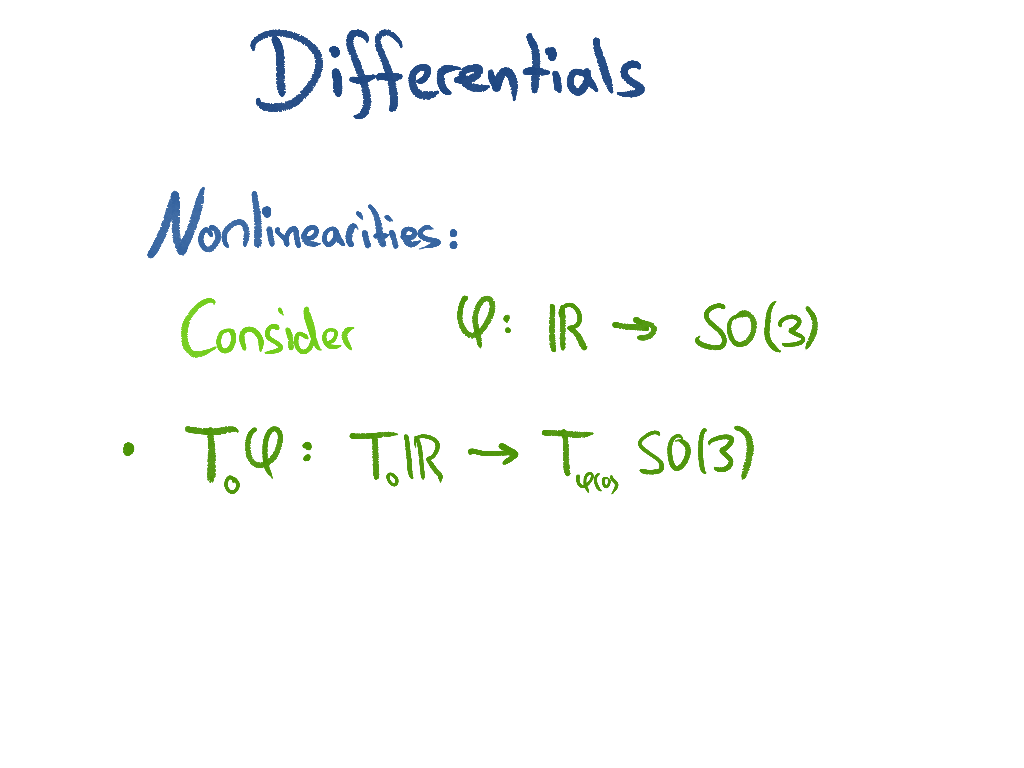 Differentials
Nonlinearities:
Consider φ: ℝ → SO(3)
• T₀φ: T₀ℝ → T_φ(0) SO(3)